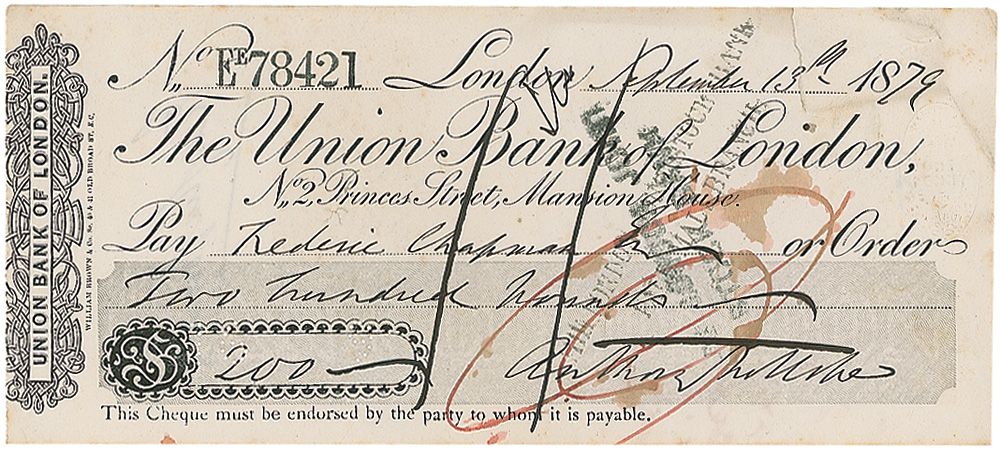 UNION BANK OF LONDON.
WILLIAM BROWN & Co. Sc. 40 & 41 OLD BROAD ST. E.C.
No. EE 78421 London September 13th 1879
The Union Bank of London,
No. 2, Princes Street, Mansion House.
Pay Frederic Chapman or Order
Two hundred Pounds
200
Anthony Trollope
This Cheque must be endorsed by the party to whom it is payable.